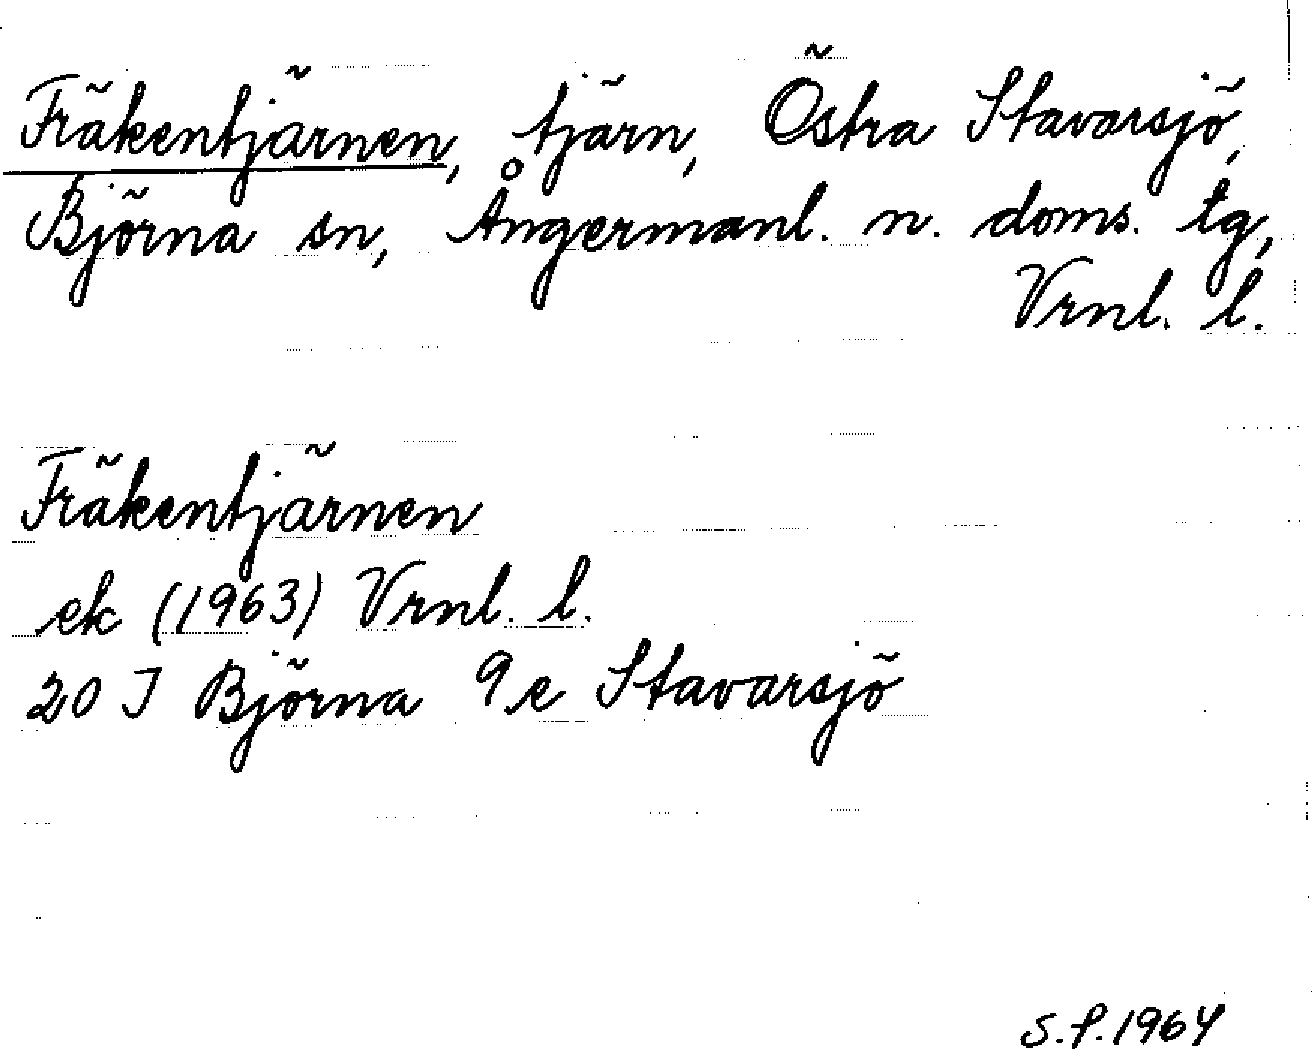 Fräkentjärnen, tjärn, Östra Stavarsjö,
Björna sn, Ångermanl. n. doms. tg,
Vrnl. l.
Fräkentjärnen
ek (1963) Vrnl. l.
20 I Björna 9e Stavarsjö
S.P. 1964